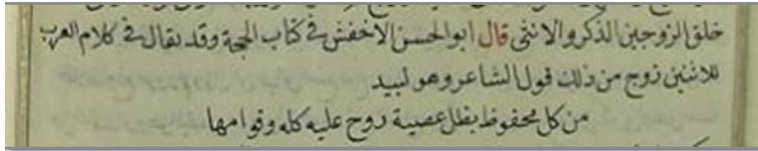 خلق الزوجين الذكر والانثى قال ابو الحسن الاخفش في كتاب الحجة وقد يقال في كلام العرب
للاثنين زوج من ذلك قول الشاعر وهو لبيد
من كل محفوظ يظل عصية روح عليه كله وقوامها